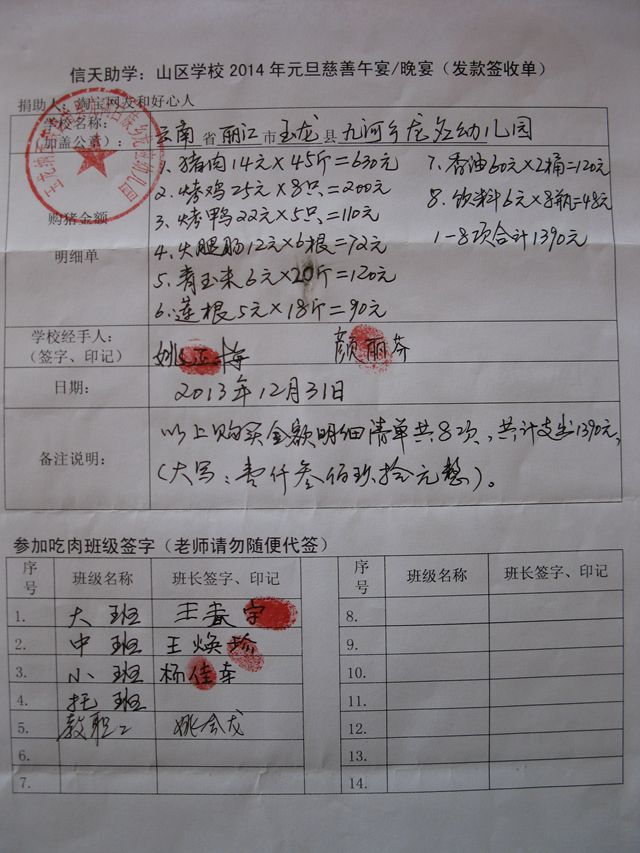 信天助学：山区学校2014年元旦慈善午宴/晚宴（发款签收单）
捐助人：淘宝网友和好心人
学校名称：
（加盖公章）：
云南省丽江市玉龙县九河乡龙应幼儿园
购猪金额
明细单
1、猪肉14元×45斤=630元
2、烤鸡25元×8只=200元
3、烤鸭22元×5只=110元
4、火腿肠12元×6根=72元
5、青玉米6元×20斤=120元
6、莲根5元×18斤=90元
7、香油60元×2桶=120元
8、饮料6元×8瓶=48元
1-8项合计1390元
学校经手人：
（签字、印记）
颜丽芬
日期：
2013年12月31日
备注说明：
以上购买金额明细清单共8项，共计支出1390元，
（大写：壹仟叁佰玖拾元整）。
参加吃肉班级签字（老师请勿随便代签）
序号 班级名称 班长签字、印记 序号 班级名称 班长签字、印记
1. 大班 王春宇 8.
2. 中班 王焕珍 9.
3. 小班 杨佳幸 10.
4. 托班 11.
5. 教职工 姚会龙 12.
6. 13.
7. 14.